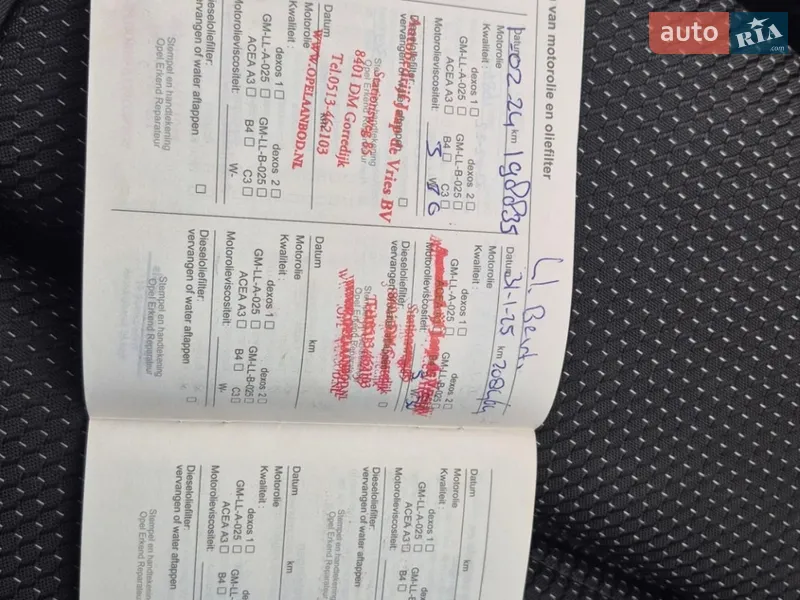 auto RIA.com
van motorolie en oliefilter
Datum 02 24 km 198835
Motorolie
Kwaliteit :
dexos 1 dexos 2
GM-LL-A-025 GM-LL-B-025
ACEA A3 B4 C3
Motorolieviscositeit: 5 W
Dieseloliefilter:
vervangen of water aftappen
Stempel en handtekening
Opel Erkend Reparateur
Autobedrijf Jaap de Vries BV
Stationsweg 85
8401 DM Gorredijk
Tel.0513-462103
www.OPELAANBOD.NL
Datum km
Motorolie
Kwaliteit :
dexos 1 dexos 2
GM-LL-A-025 GM-LL-B-025
ACEA A3 B4 C3
Motorolieviscositeit: W-
Dieseloliefilter:
vervangen of water aftappen
Stempel en handtekening
Opel Erkend Reparateur
Datum 21-1-25 km
Motorolie
Kwaliteit :
dexos 1 dexos 2
GM-LL-A-025 GM-LL-B-025
Motorolieviscositeit: 5 W-
Dieseloliefilter:
Datum km
Motorolie
Kwaliteit :
dexos 1 dexos 2
GM-LL-A-025 GM-LL-B-025
ACEA A3 B4 C3
Motorolieviscositeit: W-
Dieseloliefilter:
vervangen of water aftappen
Stempel en handtekening
Opel Erkend Reparateur
Datum km
Motorolie
Kwaliteit :
dexos 1
GM-LL-A-025
ACEA A3 B4
Motorolieviscositeit:
Dieseloliefilter:
vervangen of water aftappen
Stempel en handtekening
Opel Erkend Reparateur
Datum km
Motorolie
Kwaliteit :
dexos 1
GM-LL-A-025
ACEA A3 B4
Motorolieviscositeit:
Dieseloliefilter:
vervangen of water aftappen
Stempel en handtekening
Opel Erkend Reparateur